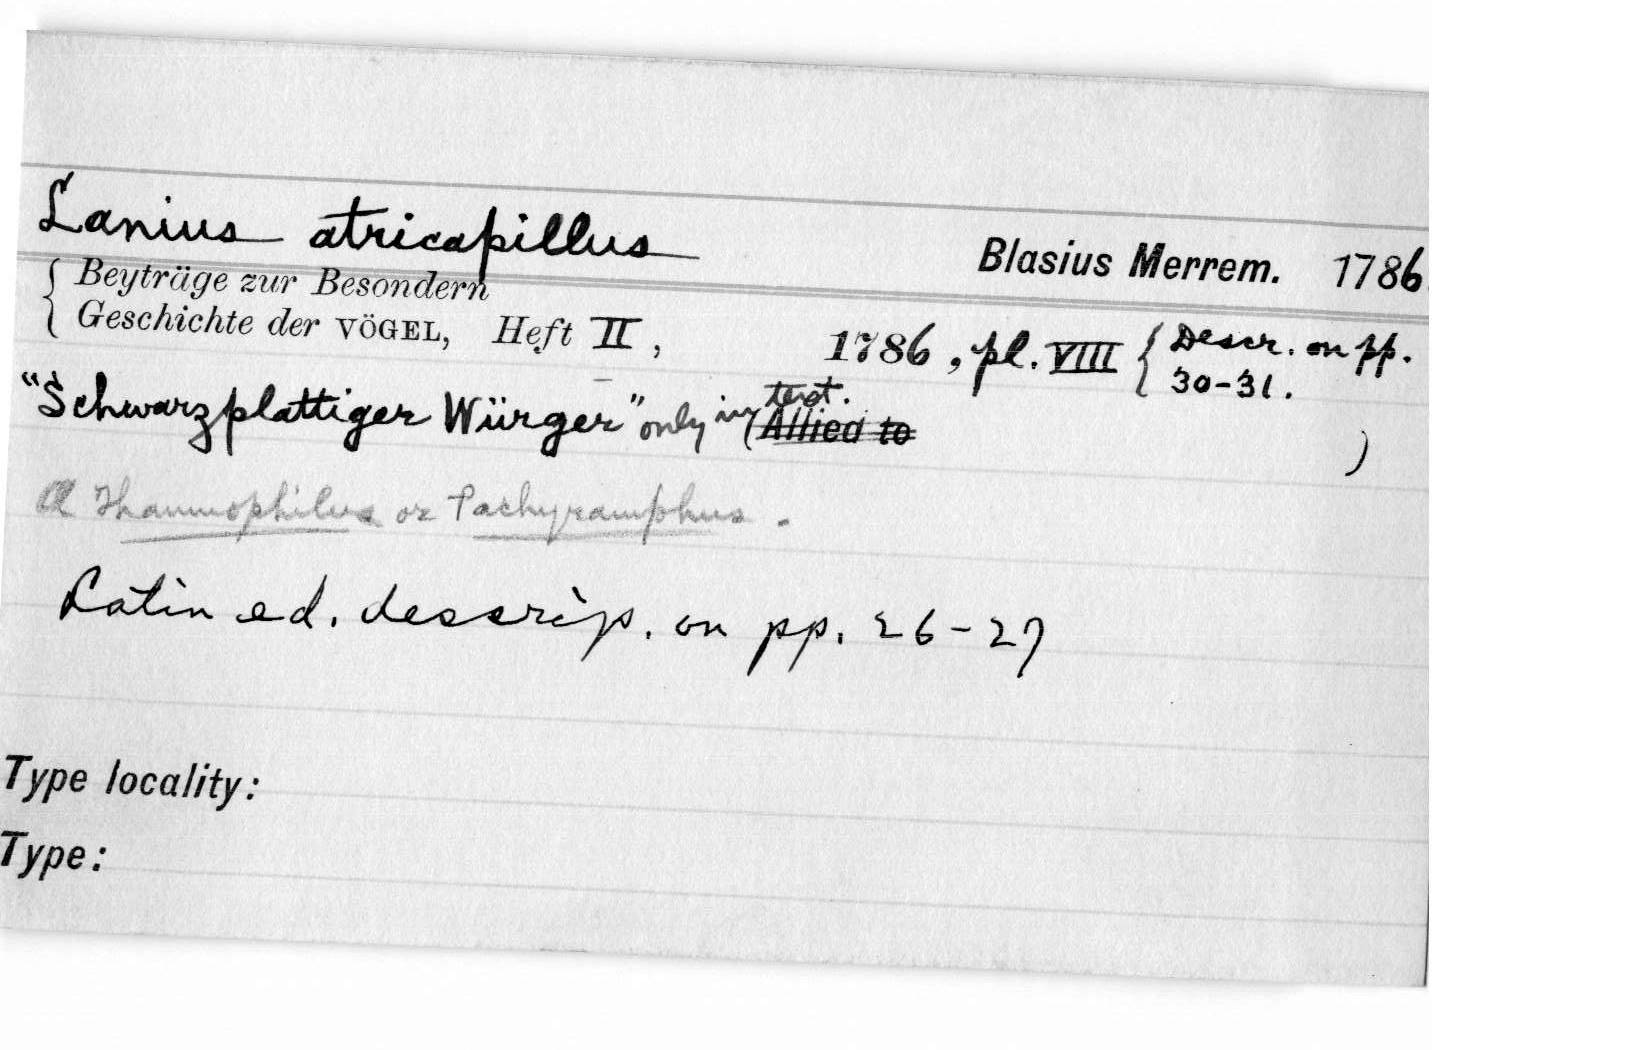 Lanius atricapillus Blasius Merrem. 1786
{ Beyträge zur Besondern
Geschichte der VÖGEL, Heft II, 1786, pl. VIII { Descr. on pp.
30-31.
"Schwarzplattiger Würger" only in text.
(Allied to )
A Thamnophilus or Pachyramphus.
Latin ed. descrip. on pp. 26-27
Type locality:
Type: